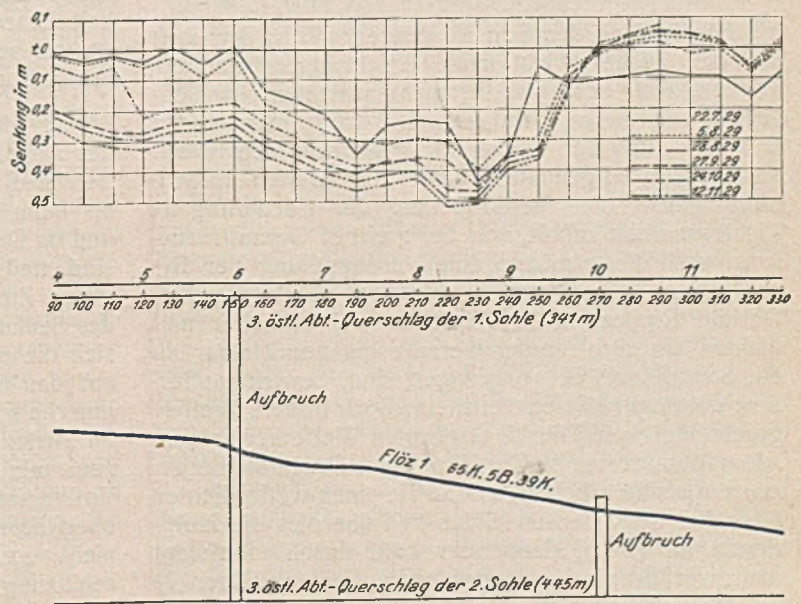 0,1
±0
0,1
0,2
0,3
0,4
0,5
Senkung in m
22.7.29
5.8.29
28.8.29
27.9.29
24.10.29
12.11.29
4 5 6 7 8 9 10 11
90 100 110 120 130 140 150 160 170 180 190 200 210 220 230 240 250 260 270 280 290 300 310 320 330
3. östl. Abt.-Querschlag der 1. Sohle (341m)
Aufbruch
Flöz 1 65K. 5B. 39K.
Aufbruch
3. östl. Abt.-Querschlag der 2. Sohle (445m)